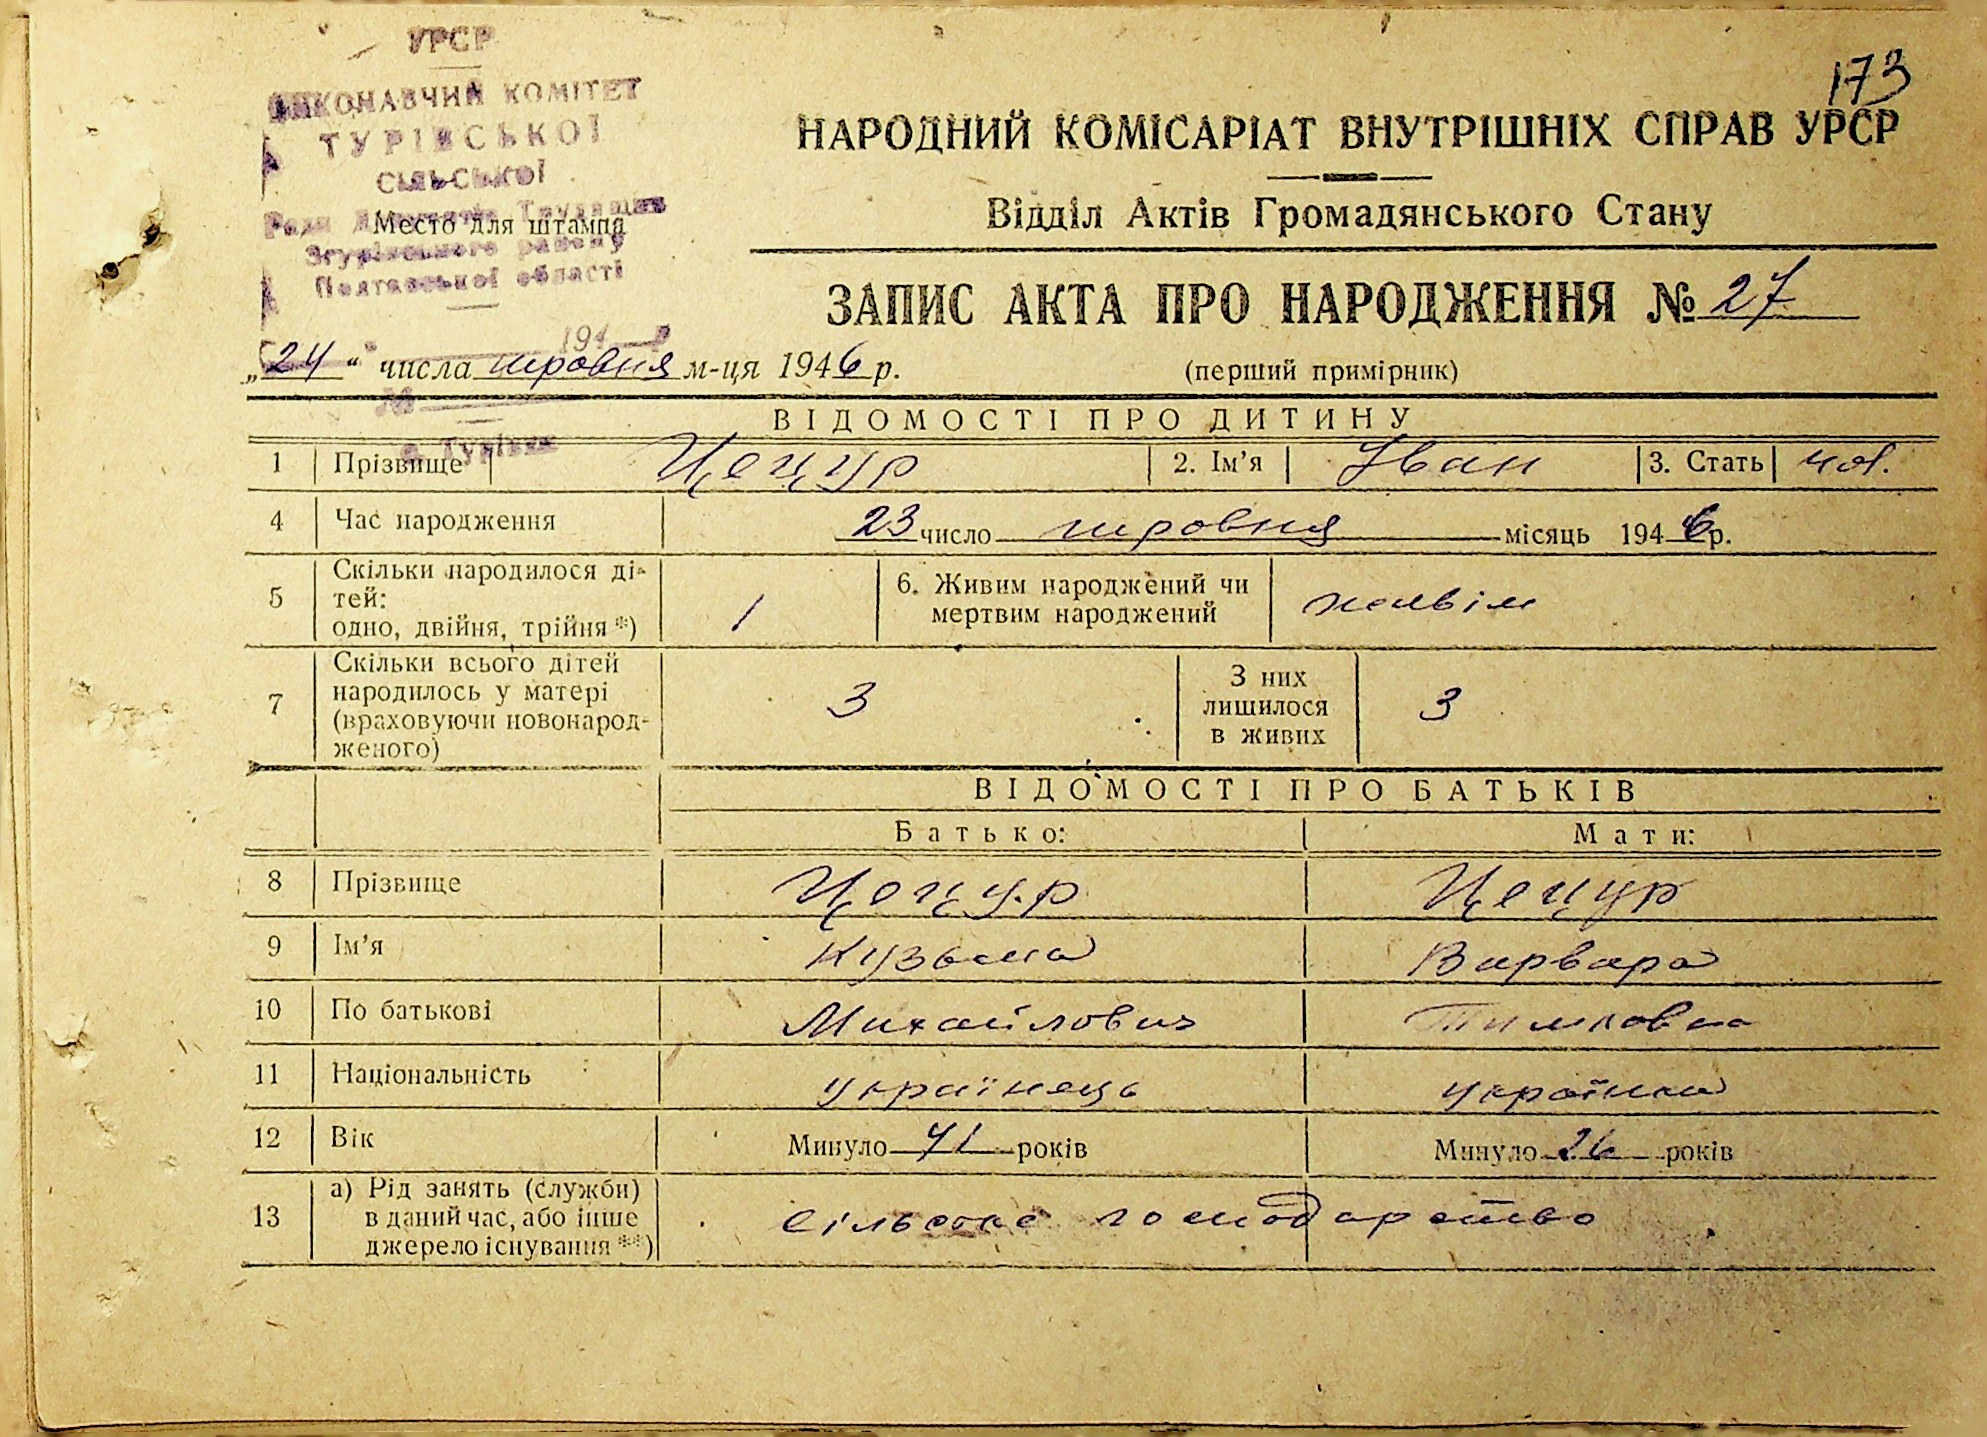 173
УРСР
ВИКОНАВЧИЙ КОМІТЕТ
ТУРІВСЬКОЇ
СІЛЬСЬКОЇ
Ради Депутатів Трудящих
Место для штампа
Згурівського району
Полтавської області
194 р
№
с. Турівка
НАРОДНИЙ КОМІСАРІАТ ВНУТРІШНІХ СПРАВ УРСР
Відділ Актів Громадянського Стану
ЗАПИС АКТА ПРО НАРОДЖЕННЯ № 27
„24“ числа м-ця 1946 р.
(перший примірник)
ВІДОМОСТІ ПРО ДИТИНУ
1 Прізвище Цецур 2. Ім’я Іван 3. Стать чол.
4 Час народження 23 число місяць 1946 р.
5 Скільки народилося ді-
тей:
одно, двійня, трійня *) 1
6. Живим народжений чи
мертвим народжений живім
7 Скільки всього дітей
народилось у матері
(враховуючи новонарод-
женого) 3
З них
лишилося
в живих 3
ВІДОМОСТІ ПРО БАТЬКІВ
Батько: Мати:
8 Прізвище Цецур Цецур
9 Ім’я Кузьма Варвара
10 По батькові Михайлович Тимковна
11 Національність українець українка
12 Вік Минуло 41 років Минуло 26 років
13 а) Рід занять (служби)
в даний час, або інше
джерело існування **) сільське господарство